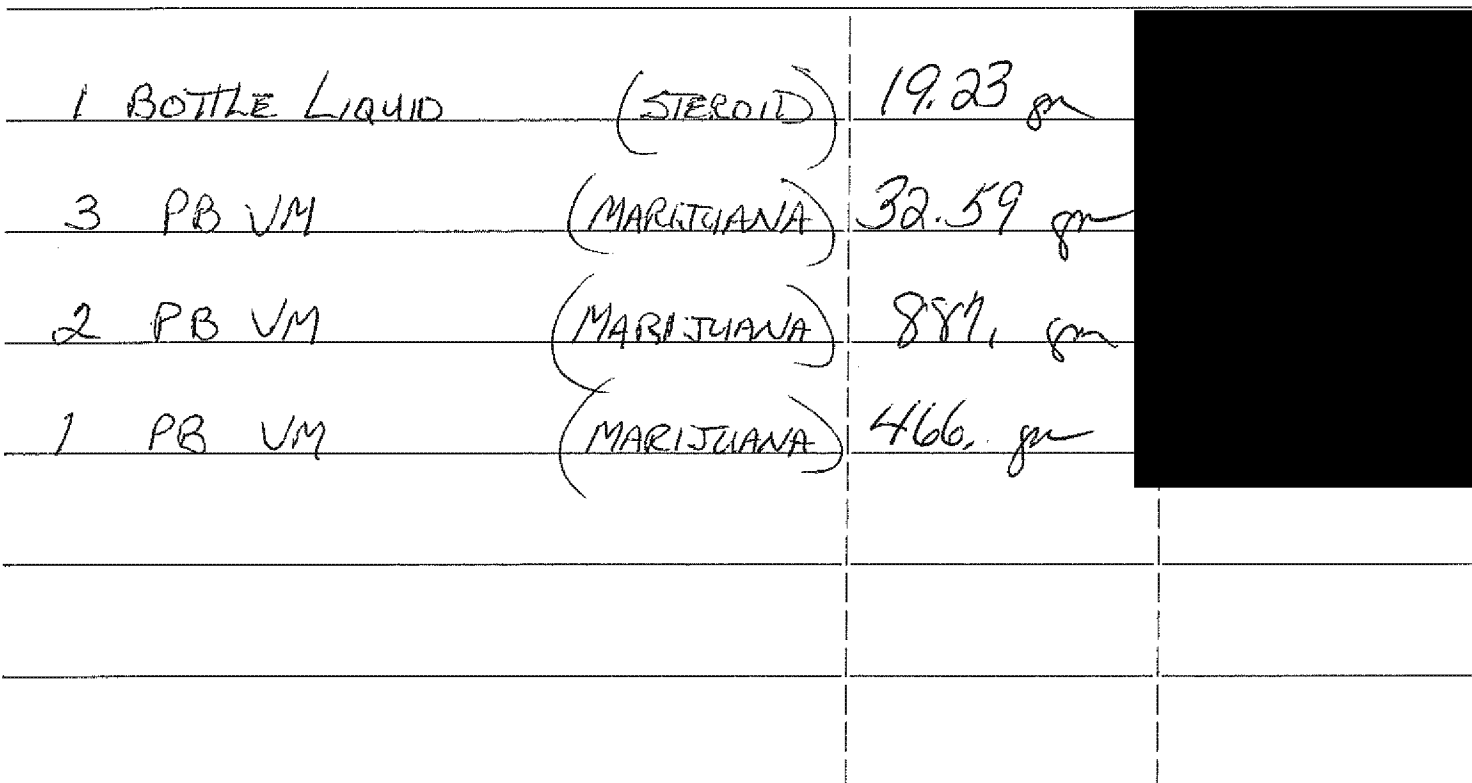 1 BOTTLE LIQUID (STEROID) 19.23 gm
3 PB VM (MARIJUANA) 32.59 gm
2 PB VM (MARIJUANA) 887. gm
1 PB VM (MARIJUANA) 466. gm